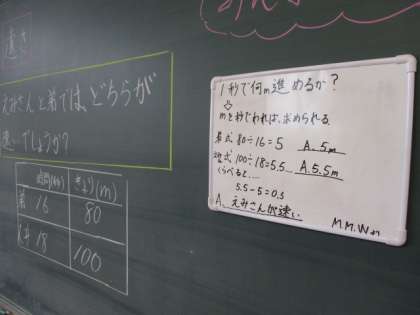 速さ
えみさんと弟では、どちらが
速いでしょうか?
時間(秒) きょり(m)
弟 16 80
えみ 18 100
1秒で何m進めるか?
⇩
mを秒でわれば、求められる。
弟 式 80÷16=5 A.5m
式 100÷18=5.5… A.5.5m
くらべると…
5.5-5=0.5
A. えみさんが速い
M.M.W